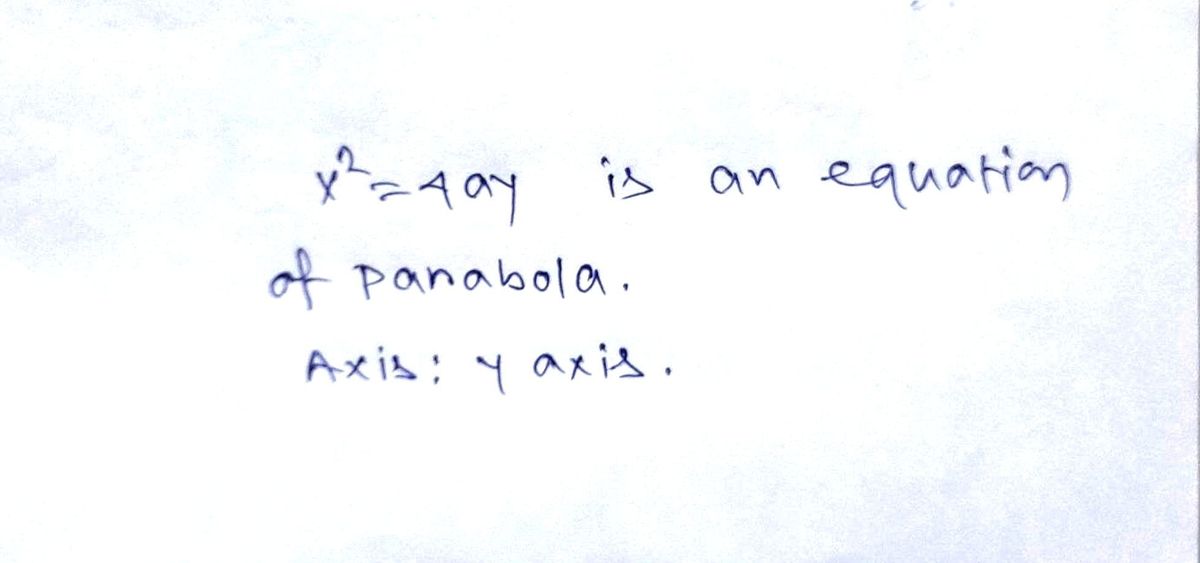 x²=4ay is an equation
of parabola.
Axis: y axis.